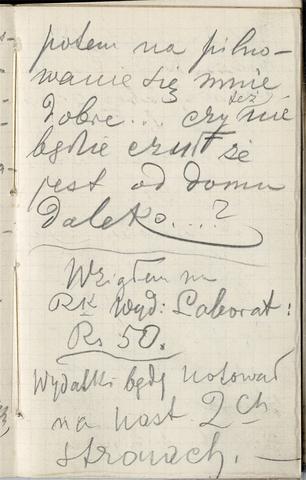 potem na pilno-
wanie się mnie
dobre... czy też nie
będzie czuł że
jest od domu
Daleko....?
Wziąłem na
RK wyd: Laborat:
Rs 50.
Wydatki będę notował
na nast 2ch
stronach. —